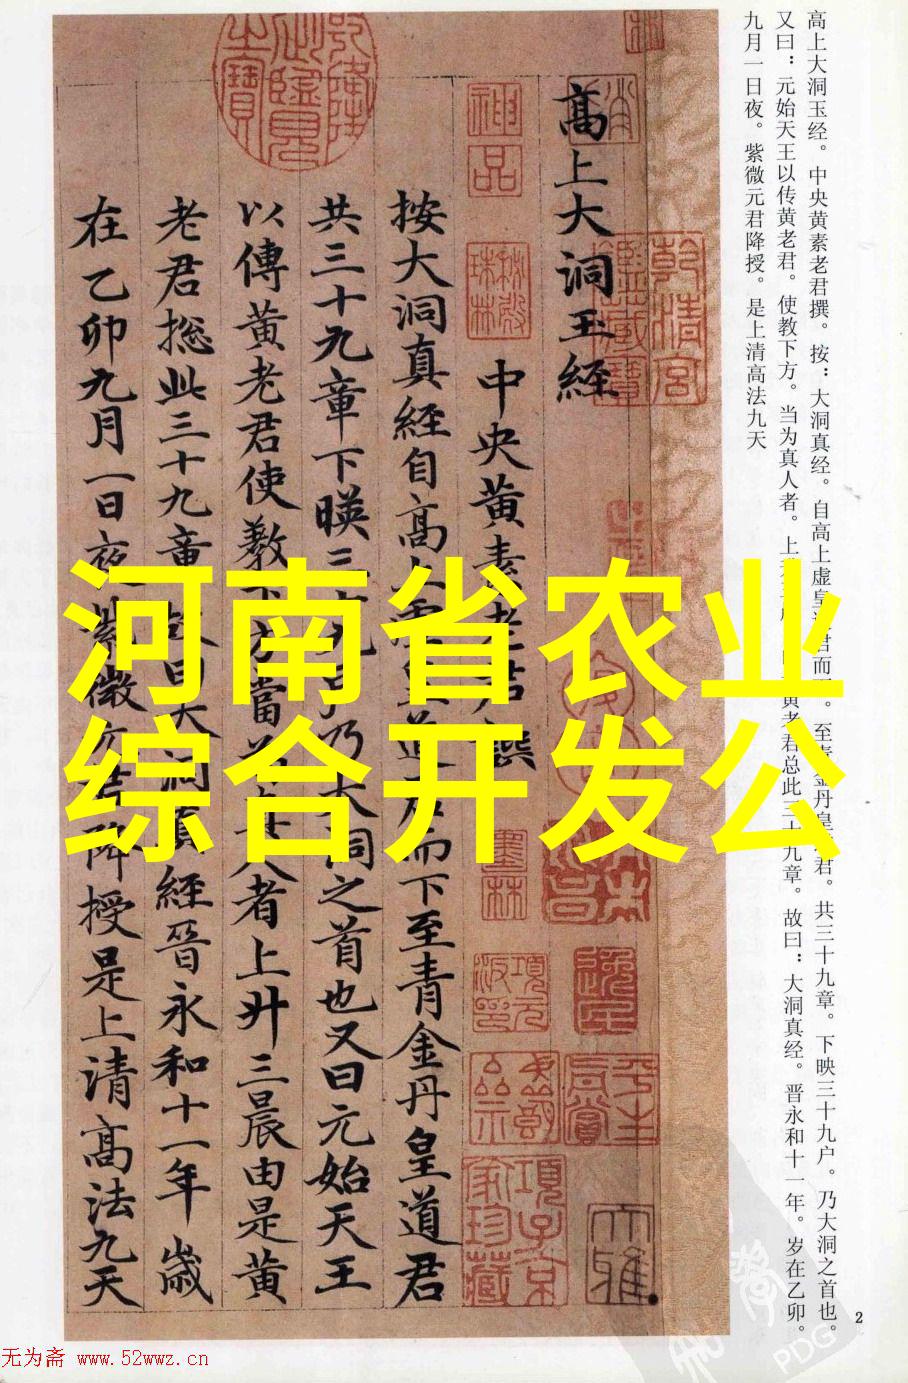 高上大洞玉經
中央黄素老君撰
按大洞真經自高上虛皇道君而下至青金丹皇道君
共三十九章下暎三十九户乃大洞之首也又曰元始天王
以傳黄老君使教下方當为真人者上升三晨由是黄
老君捴此三十九章故曰大洞真經晉永和十一年歲
在乙卯九月一日夜紫微元君降授是上清髙法九天
高上大洞玉经。中央黄素老君撰。按：大洞真经。自高上虚皇道君而下。至青金丹皇道君。共三十九章。下映三十九户。乃大洞之首也。
又曰：元始天王以传黄老君。使教下方。当为真人者。上黄老君总此三十九章。故曰：大洞真经。晋永和十一年。岁在乙卯。
九月一日夜。紫微元君降授。是上清高法九天
河南省农业
综合开发公
神品
乾清宫
2
PDG
无为斋 www.52wwz.cn